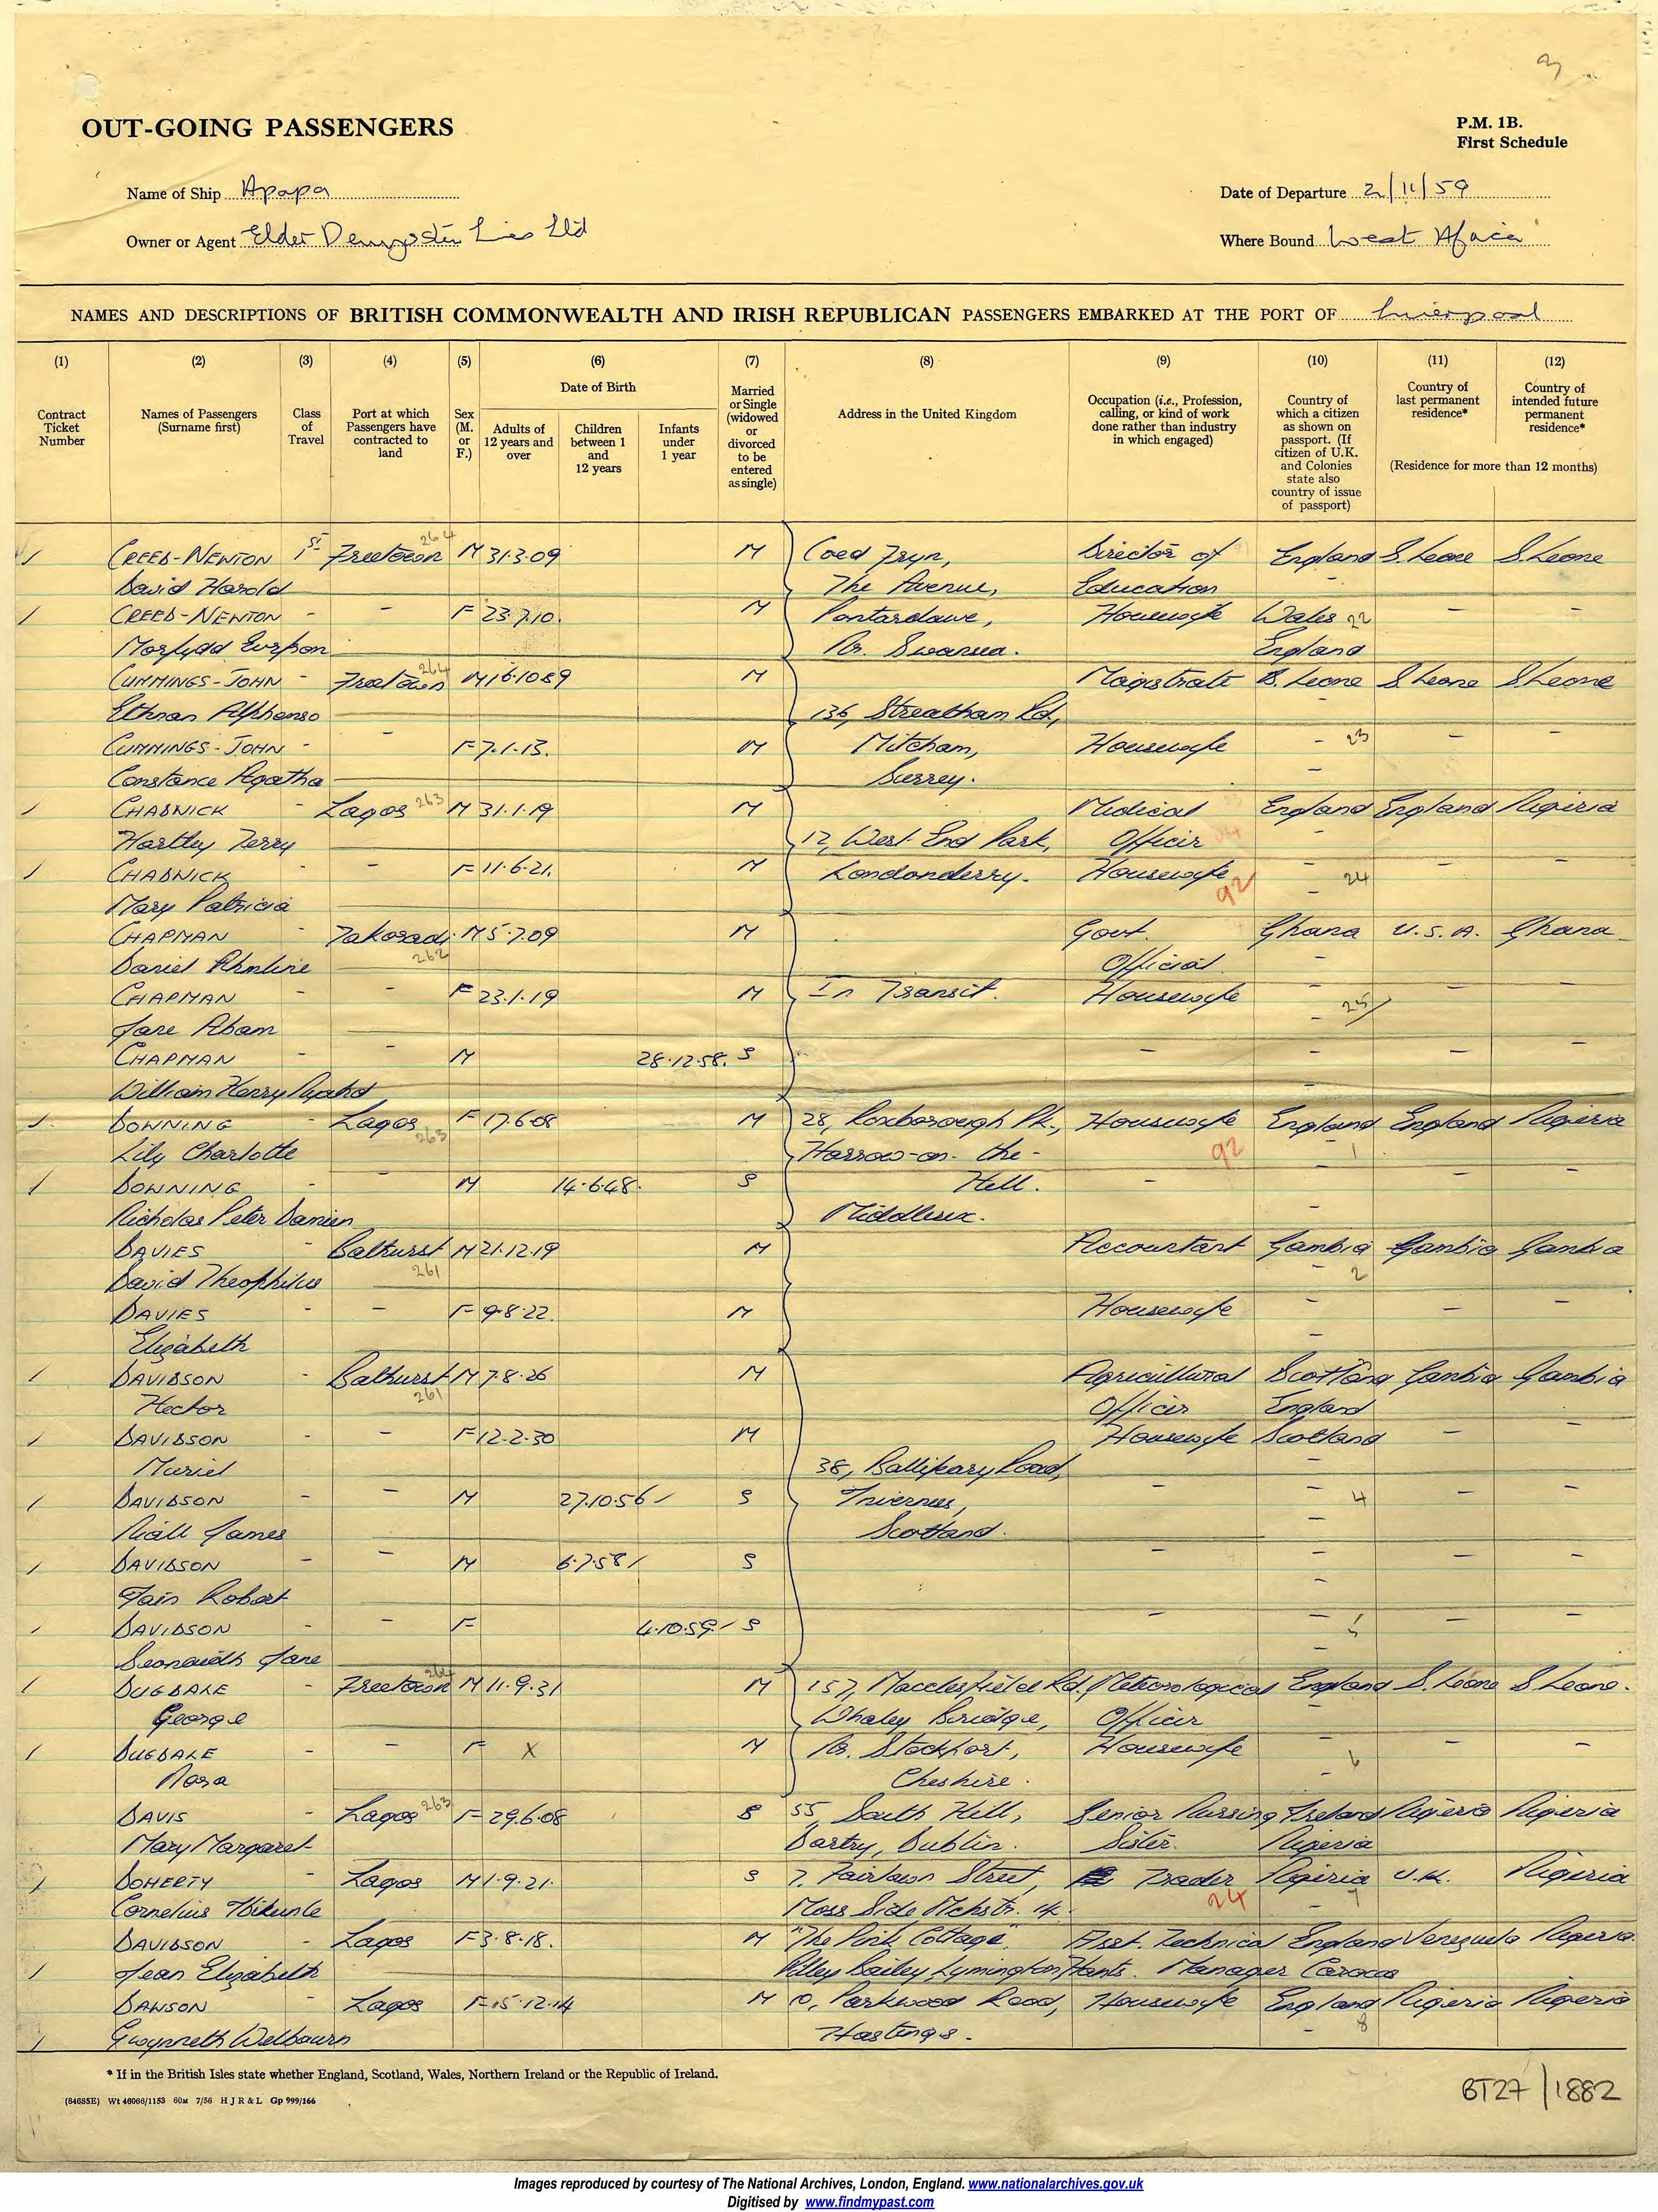 3
OUT-GOING PASSENGERS
P.M. 1B.
First Schedule
Name of Ship Apapa
Date of Departure 2/11/59
Owner or Agent Elder Dempster Lines Ltd
Where Bound West Africa
NAMES AND DESCRIPTIONS OF BRITISH COMMONWEALTH AND IRISH REPUBLICAN PASSENGERS EMBARKED AT THE PORT OF Liverpool
(1) (2) (3) (4) (5) (6) (7) (8) (9) (10) (11) (12)
Contract Ticket Number
Names of Passengers (Surname first)
Class of Travel
Port at which Passengers have contracted to land
Sex (M. or F.)
Date of Birth
Adults of 12 years and over
Children between 1 and 12 years
Infants under 1 year
Married or Single (widowed or divorced to be entered as single)
Address in the United Kingdom
Occupation (i.e., Profession, calling, or kind of work done rather than industry in which engaged)
Country of which a citizen as shown on passport. (If citizen of U.K. and Colonies state also country of issue of passport)
Country of last permanent residence*
Country of intended future permanent residence*
(Residence for more than 12 months)
CREED-NEWTON 1st Freetown 264 M 31.3.09 M Coed Fryn, Director of England S. Leone S. Leone
David Harold The Avenue, Education -
CREED-NEWTON - - F 23.7.10. M Pontardawe, Housewife Wales 22 - -
Morfydd Nr. Swansea. England
CUMMINGS-JOHN - Freetown 264 M 16.10.89 M Magistrate S. Leone S. Leone S. Leone
Ethnan Alphonso 136, Streatham Rd,
CUMMINGS-JOHN - - F 7.1.13. M Mitcham, Housewife - 23 - -
Constance Agatha Surrey. -
CHADWICK - Lagos 263 M 31.1.19 M Medical England England Nigeria
Hartley Terry 12, West End Park, Officer -
CHADWICK - - F 11.6.21. M Londonderry. Housewife 92 - 24 - -
Mary Patricia
CHAPMAN - Takoradi 262 M 5.7.09 M Govt. Ghana U.S.A. Ghana
Daniel Ahmline Official -
CHAPMAN - - F 23.1.19 M In Transit. Housewife - 25 - -
Jane Abam -
CHAPMAN - - M 28.12.58. S - - - -
William Henry -
DOWNING - Lagos 263 F 17.6.08 M 28, Roxborough Pk., Housewife England England Nigeria
Lily Charlotte Harrow-on-the- 92 - 1
DOWNING - - M 14.6.48. S Hill. - - - -
Nicholas Peter Damien Middlesex. -
DAVIES - Bathurst 261 M 21.12.19 M Accountant Gambia Gambia Gambia
David Theophilus - 2
DAVIES - - F 9.8.22. M Housewife - - -
Elizabeth -
DAVIDSON - Bathurst 261 M 7.8.26 M Agricultural Scotland Gambia Gambia
Hector Officer England
DAVIDSON - - F 12.2.30 M Housewife Scotland - -
Muriel 38, Ballifeary Road, -
DAVIDSON - - M 27.10.56 S Inverness, - - 4 - -
Niall James Scotland. -
DAVIDSON - - M 6.7.58 S - - - -
Iain Robert -
DAVIDSON - - F 4.10.59 S - - 5 - -
Seonaidh Jane -
DUGDALE Freetown 264 M 11.9.31 M 157, Macclesfield Rd, Meteorological England S. Leone S. Leone.
George Whaley Bridge, Officer
DUGDALE - - F X M Nr. Stockport, Housewife - 6 - -
Nora Cheshire. -
DAVIS - Lagos 263 F 29.6.08 S 55, South Hill, Senior Nursing Ireland Nigeria Nigeria
Mary Margaret Dartry, Dublin. Sister. Nigeria
DOHERTY - Lagos M 1.9.21. S 7, Fairlawn Street, Trader Nigeria U.K. Nigeria
Cornelius Ibikunle Moss Side Mchstr. 14. 24 - 7
DAVIDSON - Lagos F 3.8.18. M "The Pink Cottage", Asst. Technical England Venezuela Nigeria.
Jean Elizabeth Pilley Bailey Lymington, Hants. Manager Caracas
DAWSON Lagos F 15.12.14 M 10, Parkwood Road, Housewife England Nigeria Nigeria
Gwynneth Welbourn Hastings. - 8
* If in the British Isles state whether England, Scotland, Wales, Northern Ireland or the Republic of Ireland.
(84685E) Wt 46066/1153 60M 7/56 H J R & L Gp 999/166
BT27/1882
Images reproduced by courtesy of The National Archives, London, England. www.nationalarchives.gov.uk
Digitised by www.findmypast.com